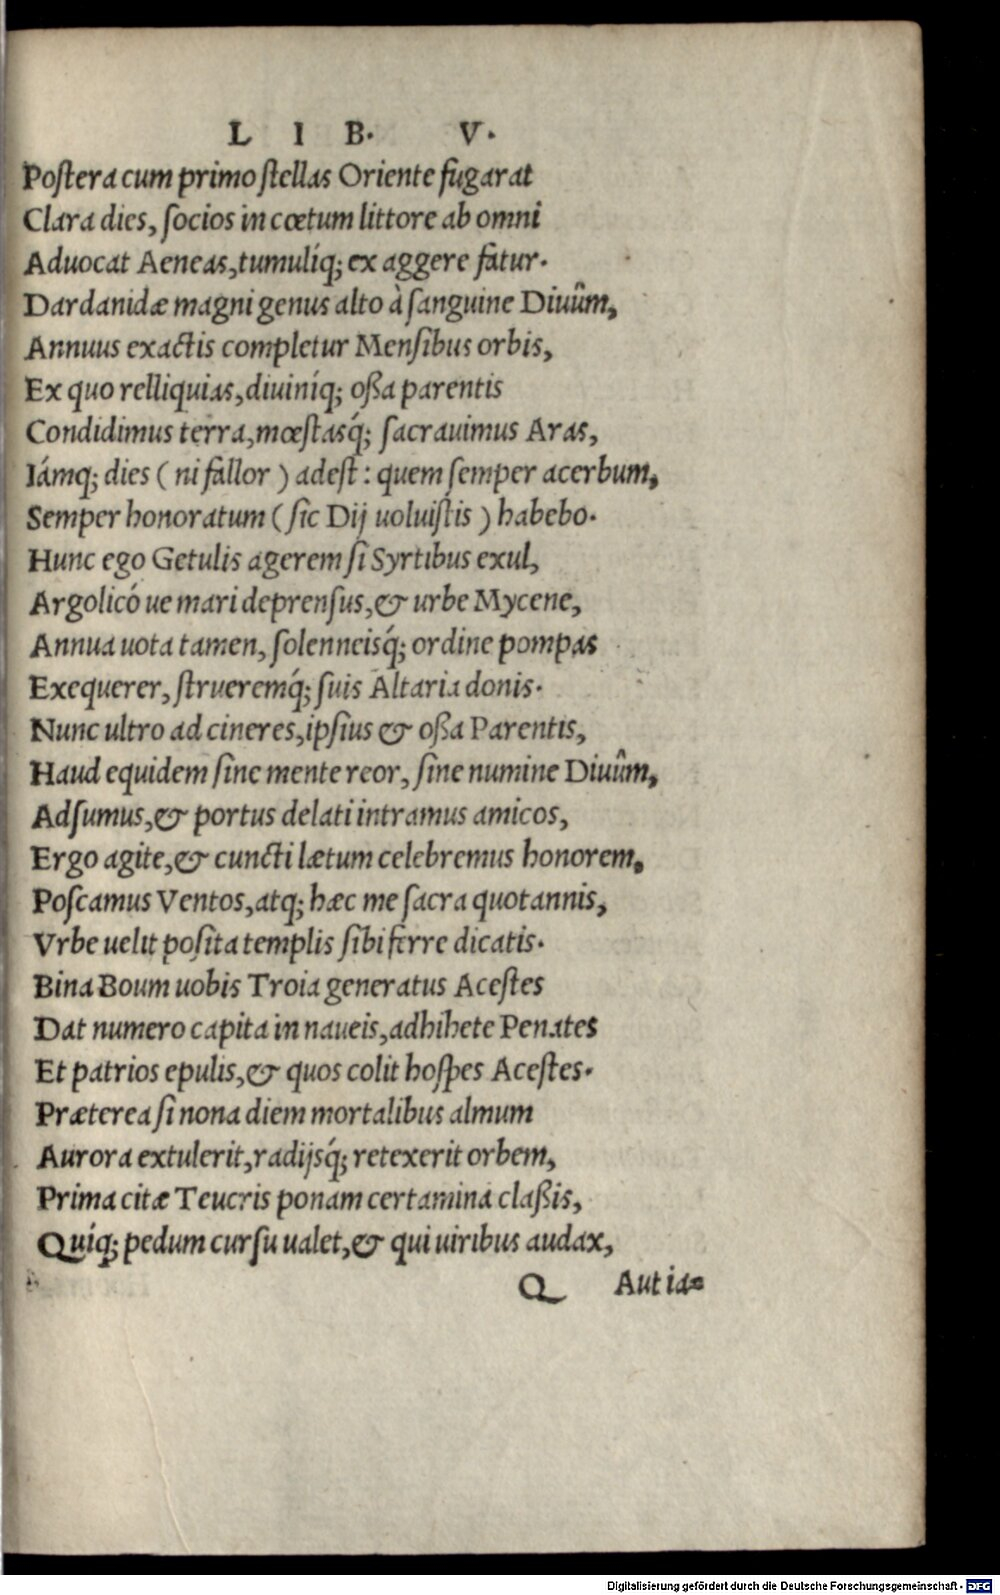 L I B. V.
Poſtera cum primo ſtellas Oriente fugarat
Clara dies, ſocios in cœtum littore ab omni
Aduocat Aeneas, tumulíq; ex aggere fatur.
Dardanidæ magni genus alto à ſanguine Diuûm,
Annuus exactis completur Menſibus orbis,
Ex quo relliquias, diuiníq; oßa parentis
Condidimus terra, mœstasq́; ſacrauimus Aras,
Iámq; dies ( ni fallor ) adeſt : quem ſemper acerbum,
Semper honoratum ( ſic Dij uoluiſtis ) habebo.
Hunc ego Getulis agerem ſi Syrtibus exul,
Argolicó ue mari deprenſus, & urbe Mycene,
Annua uota tamen, ſolenneisq́; ordine pompas
Exequerer, ſtrueremq́; ſuis Altaria donis.
Nunc ultro ad cineres, ipſius & oßa Parentis,
Haud equidem ſine mente reor, ſine numine Diuûm,
Adſumus, & portus delati intramus amicos,
Ergo agite, & cuncti lætum celebremus honorem,
Poſcamus Ventos, atq; hæc me ſacra quotannis,
Vrbe uelit poſita templis ſibi ferre dicatis.
Bina Boum uobis Troia generatus Aceſtes
Dat numero capita in naueis, adhibete Penates
Et patrios epulis, & quos colit hoſpes Aceſtes.
Præterea ſi nona diem mortalibus almum
Aurora extulerit, radijsq́; retexerit orbem,
Prima citæ Teucris ponam certamina claßis,
Quíq; pedum curſu ualet, & qui uiribus audax,
Q Aut ia=
Digitalisierung gefördert durch die Deutsche Forschungsgemeinschaft - DFG